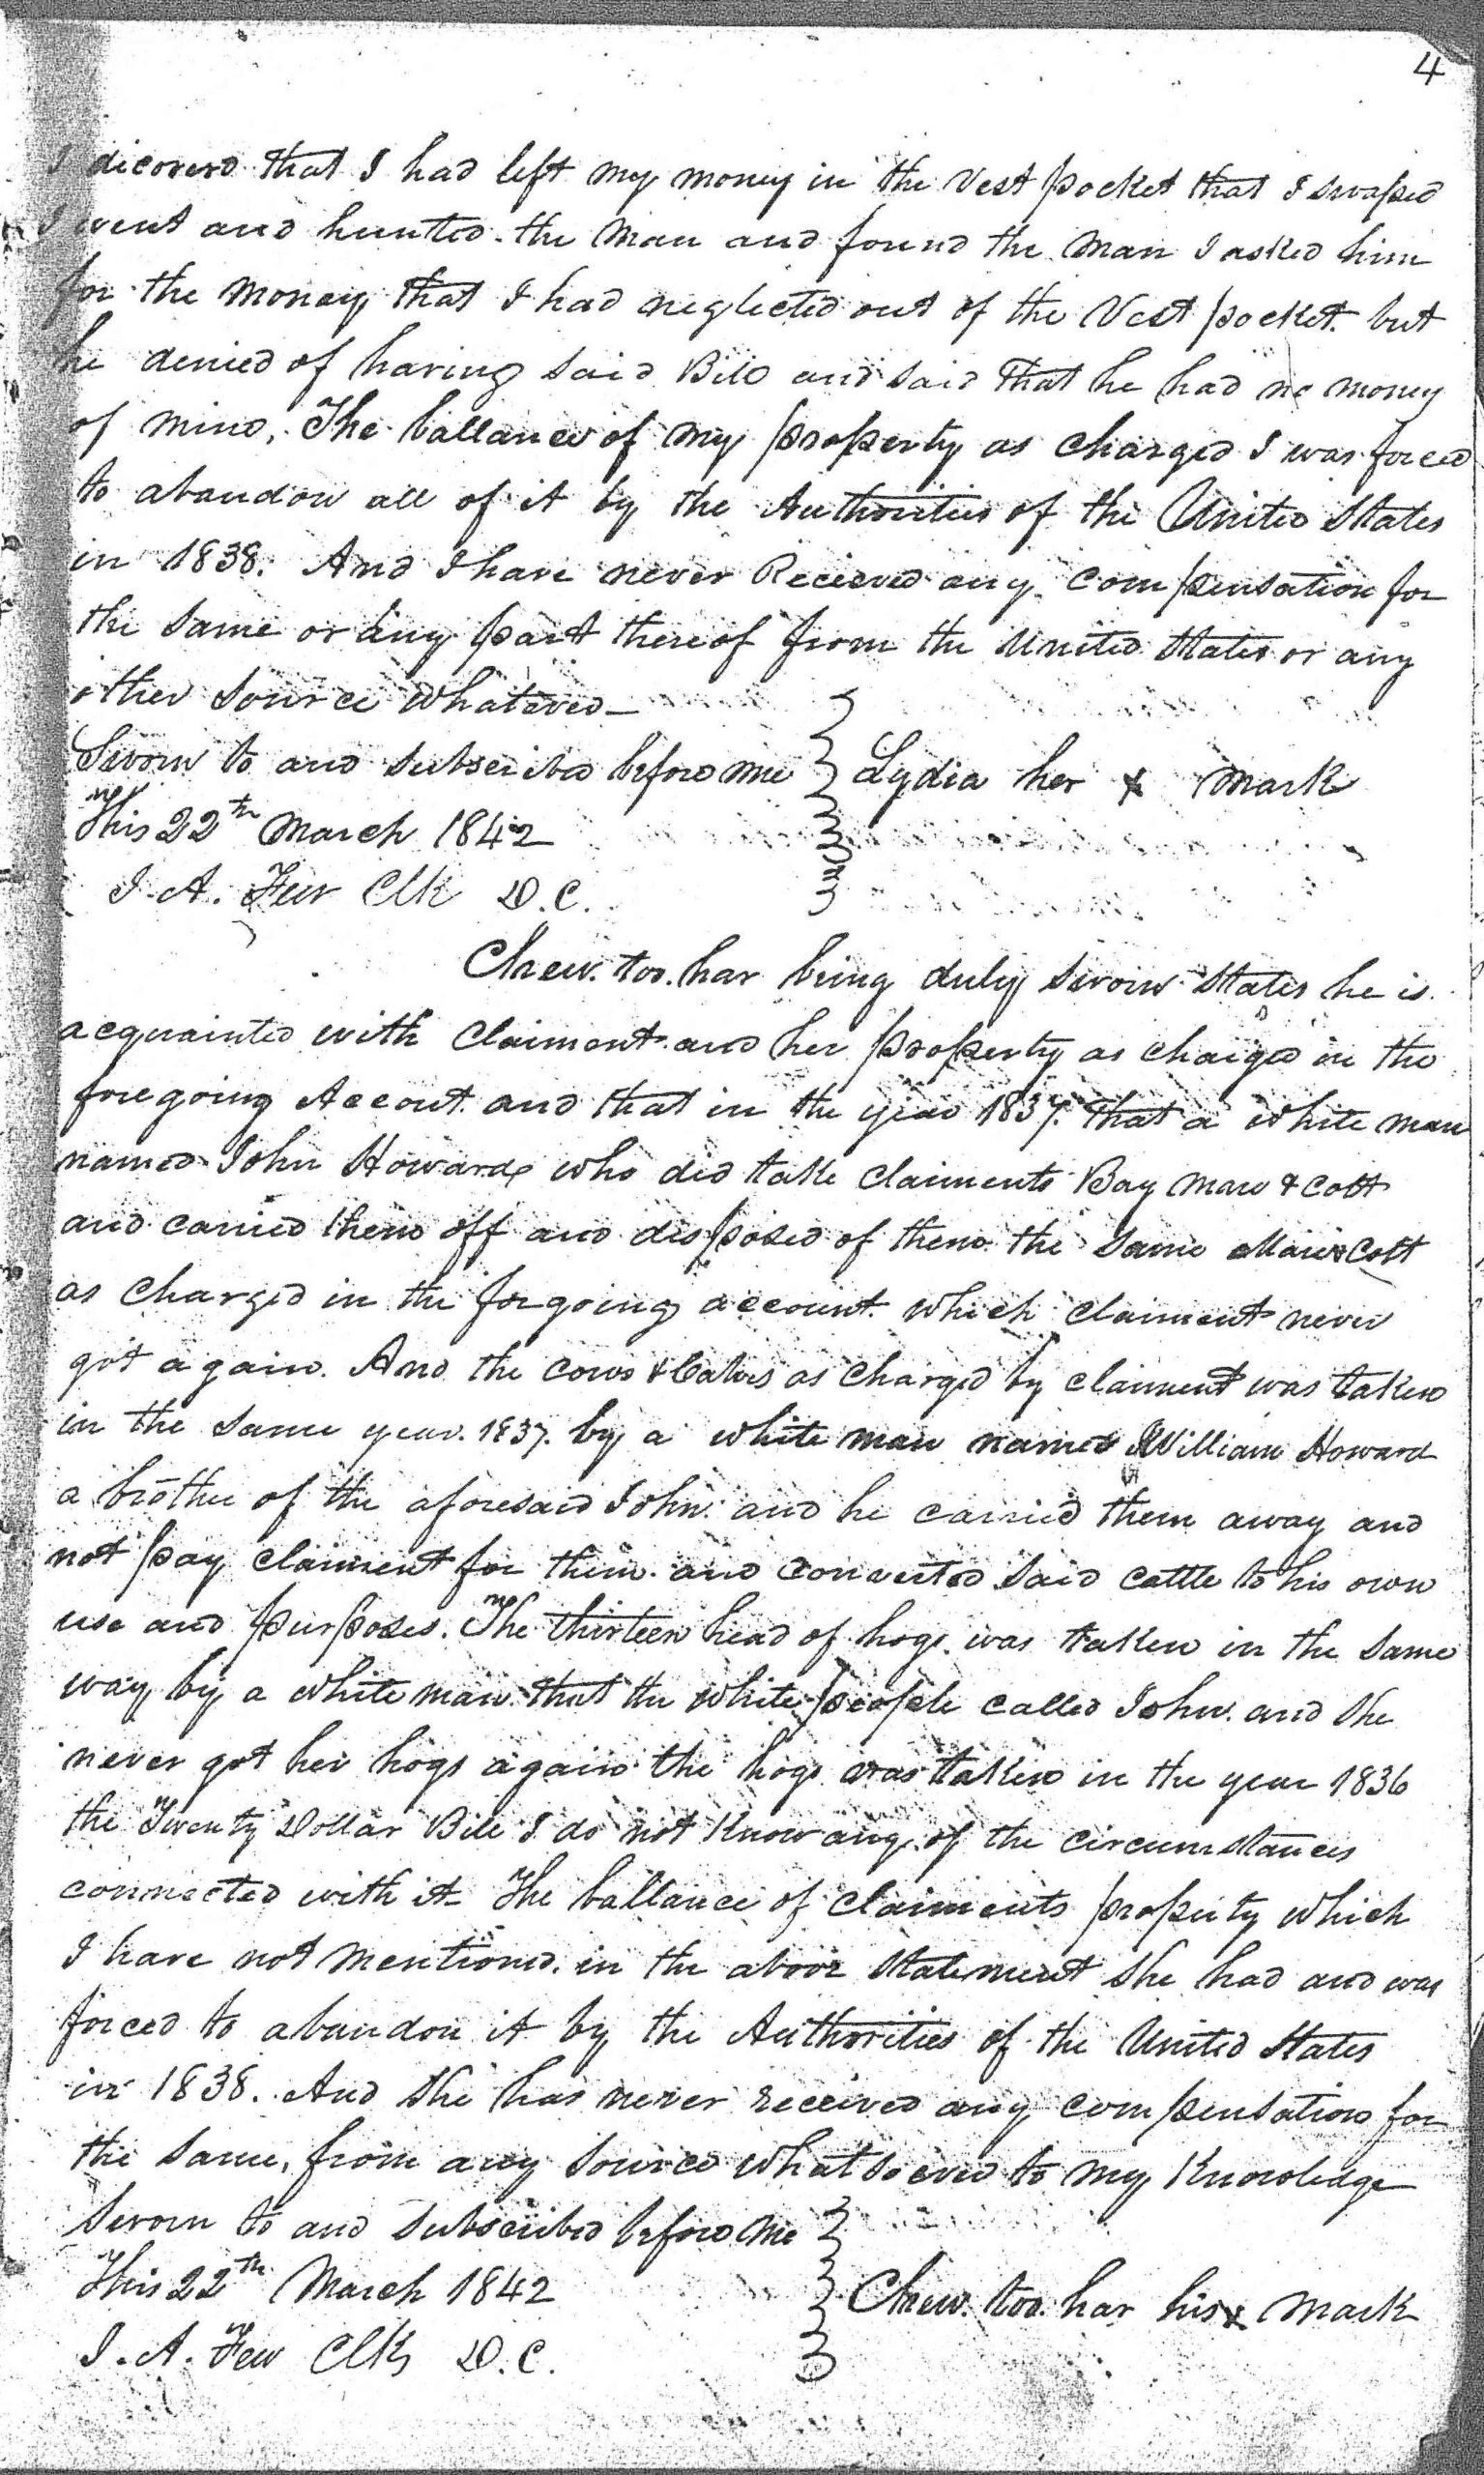 4
I dicoverd that I had left my money in the Vest pocket that I swaped
I went and hunted the man and found the man I asked him
for the money that I had neglected out of the Vest pocket. but
he denied of having said Bill and said that he had no money
of mine. The ballance of my property as charged I was forced
to abandon all of it by the Authorities of the United States
in 1838. And I have never Recieved any compensation for
the same or any part thereof from the United States or any
other source whatever
Sworn to and subscribed before me Lydia her x mark
This 22th March 1842
J. A. Few Clk D.C.
Chew. too. har being duly sworn States he is
acquainted with Claimant and her property as charged in the
foregoing Accout. and that in the year 1837. that a white man
named John Howard who did take Claiments Bay mare & colt
and carried them off and disposed of them the same Mare & Colt
as charged in the forgoing account. which claiment never
got again. And the cows & Calves as charged by claiment was taken
in the same year. 1837. by a white man named William Howard
a brother of the aforesaid John. and he carried them away and
not pay claiment for them. and converted said cattle to his own
use and purposes. The thirteen head of hogs was taken in the same
way by a white man that the white people called John. and she
never got her hogs again the hogs was taken in the year 1836
the Twenty Dollar Bill I do not know any of the circumstances
connected with it The ballance of claiments property which
I have not mentioned in the above statement she had and was
forced to abandon it by the Authorities of the United States
in 1838. And she has never received any compensation for
the same, from any source whatsoever to my Knowledge
Sworn to and subscribed before me
This 22th March 1842 Chew. too. har his x mark
J. A. Few Clk D.C.